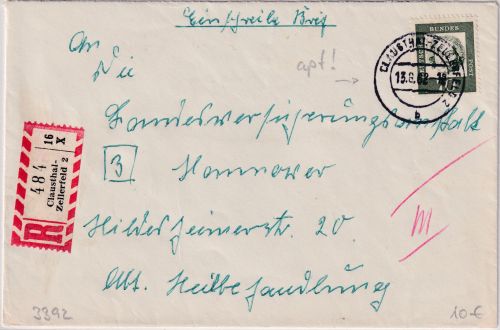 Einschreibe Brief
An
Die
apt!
Landesversicherungsanstalt
3 Hannover
Hildesheimerstr. 20
Abt. Heilbehandlung
DEUTSCHE BUNDESPOST
CLAUSTHAL-ZELLERFELD 2
13.6.62
b
R
484
Clausthal-
Zellerfeld 2
16
X
M
3392
10-€